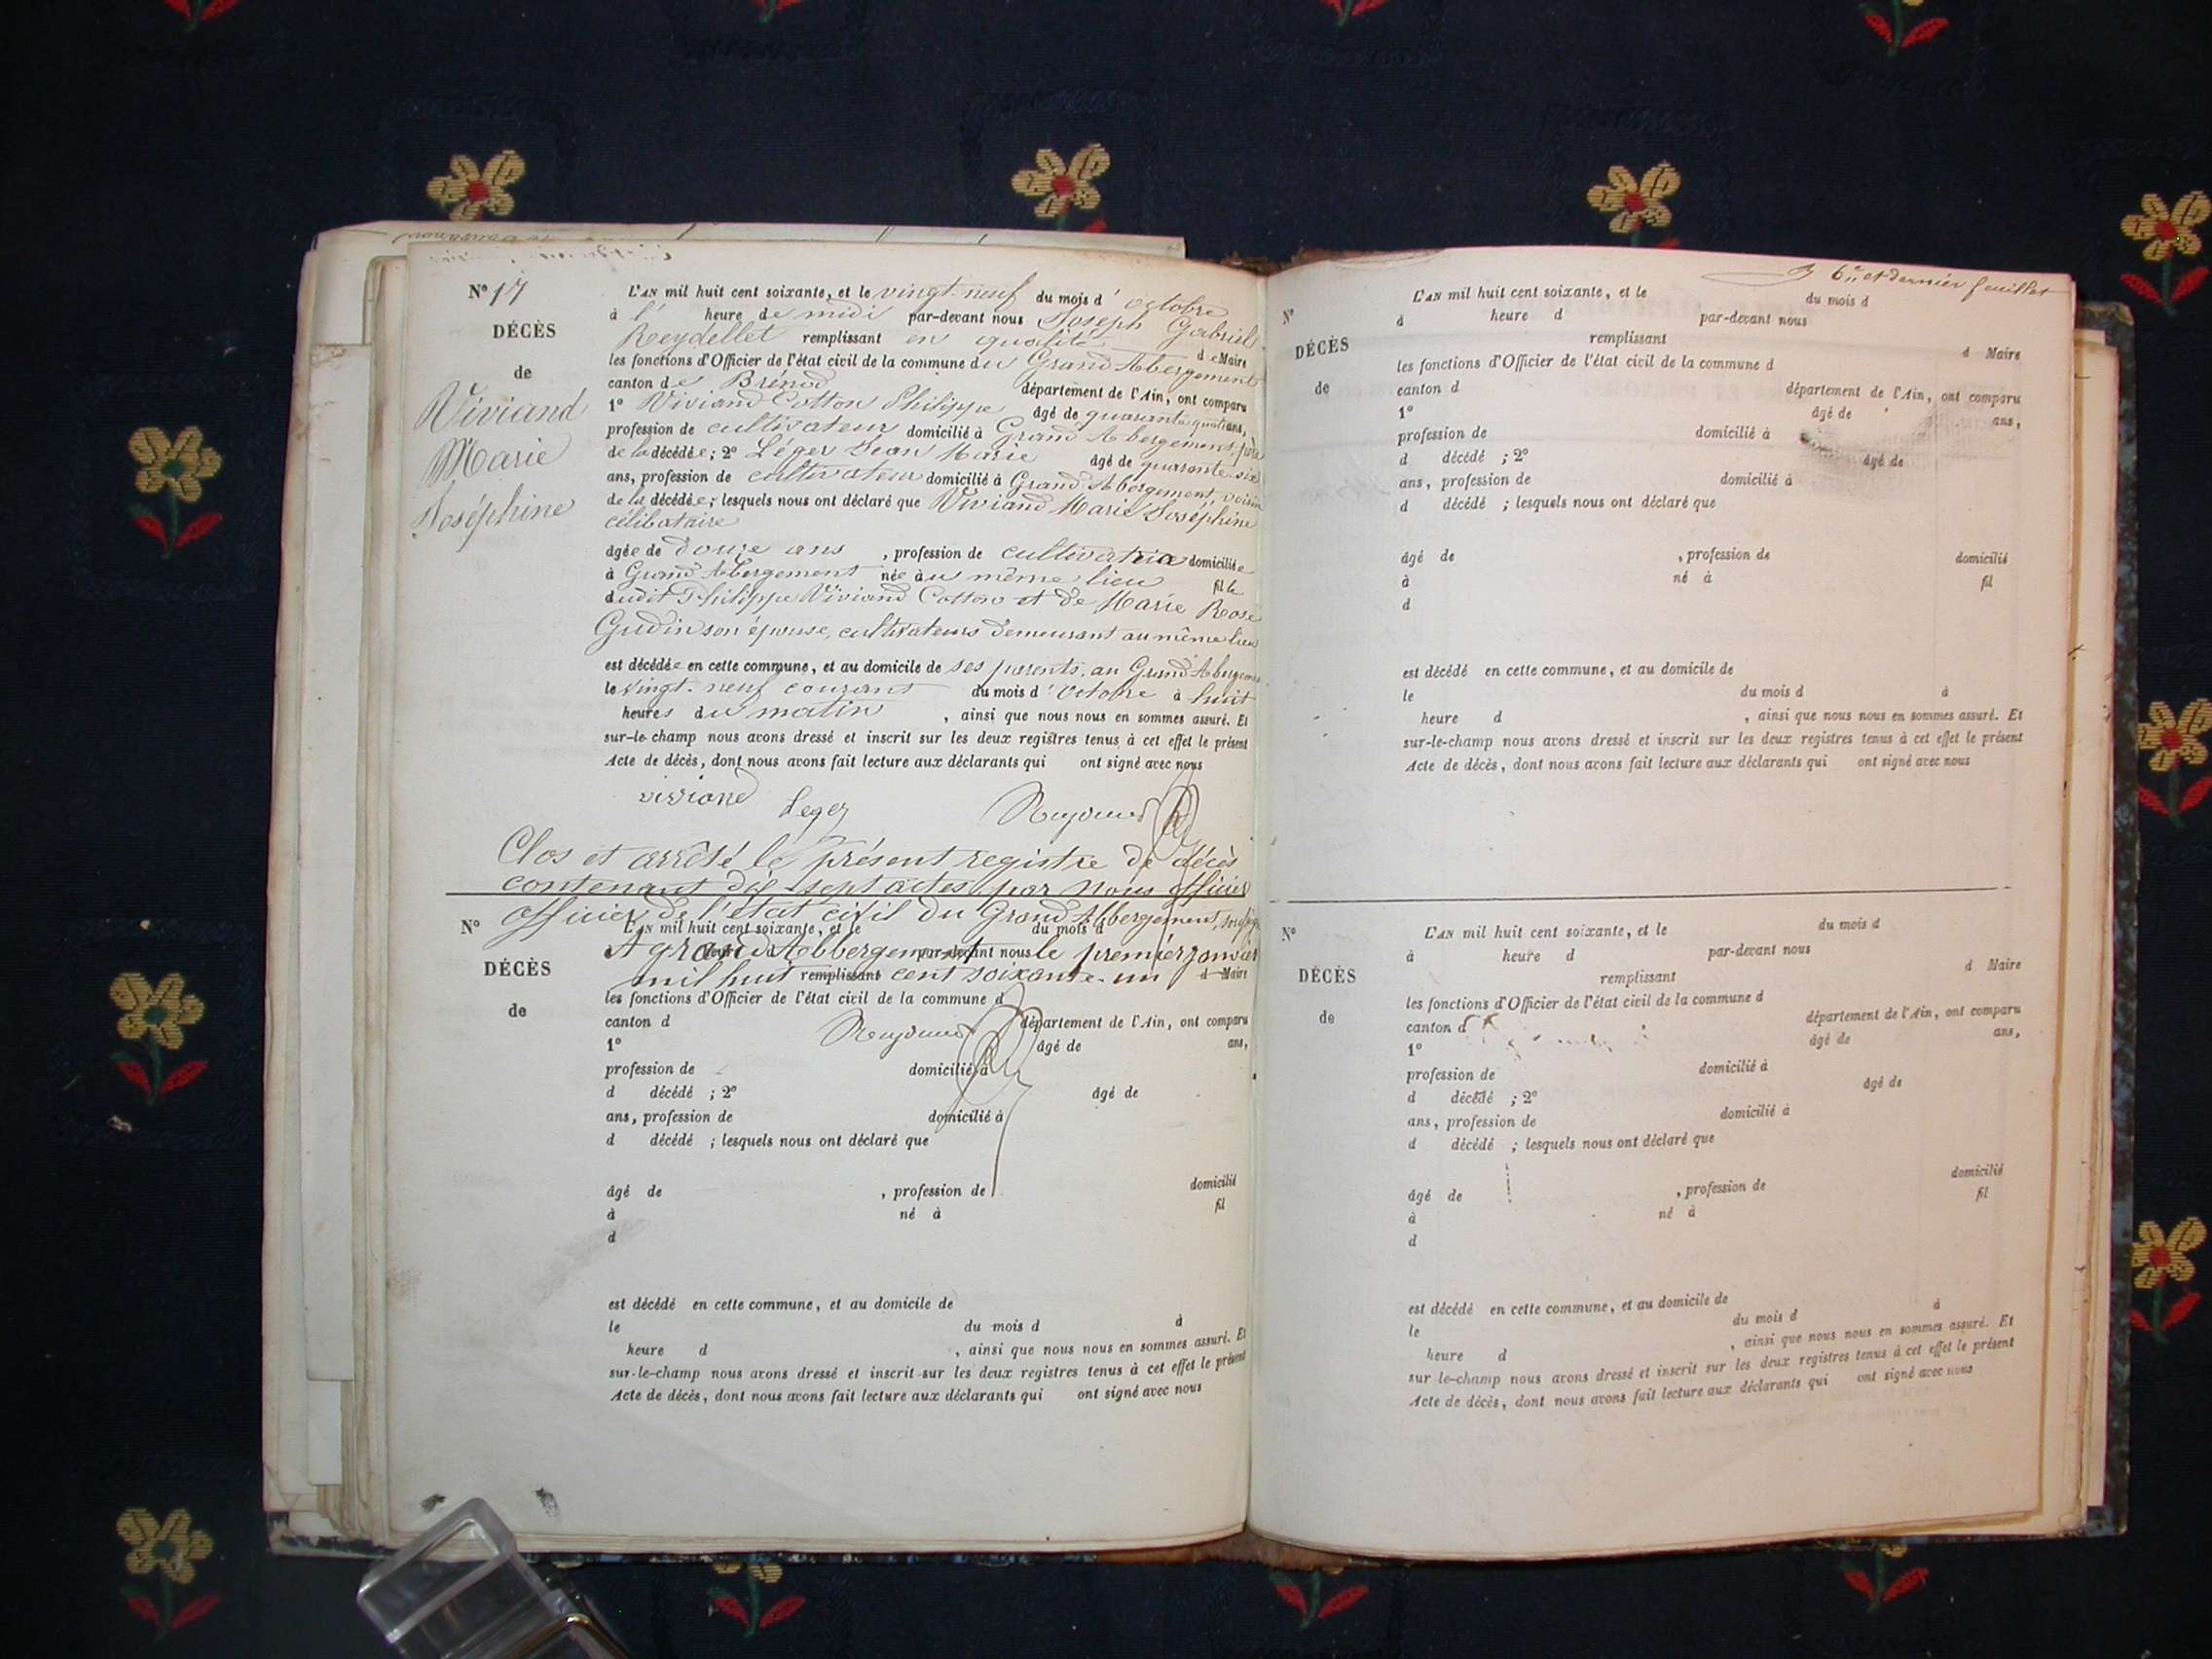 N° 17
DÉCÈS
de
Viviand
Marie
Joséphine
L'AN mil huit cent soixante, et le vingt-neuf du mois d'octobre
à l'heure de midi par-devant nous Joseph Gabriel
Reydellet remplissant en qualité de Maire
les fonctions d'Officier de l'état civil de la commune du Grand Abergement
canton de Brénod département de l'Ain, ont comparu
1° Viviand Cotton Philippe âgé de quarante quatre ans,
profession de cultivateur domicilié à Grand Abergement, père
de la décédée ; 2° Léger Jean Marie âgé de quarante-six
ans, profession de cultivateur domicilié à Grand Abergement, voisin
de la décédée ; lesquels nous ont déclaré que Viviand Marie Joséphine
célibataire
âgée de douze ans , profession de cultivatrice domiciliée
à Grand Abergement née au même lieu fille
dudit Philippe Viviand Cotton et de Marie Rose
Gudin son épouse, cultivateurs demeurant au même lieu
est décédée en cette commune, et au domicile de ses parents, au Grand Abergement
le vingt-neuf courant du mois d'octobre à huit
heures du matin , ainsi que nous nous en sommes assuré. Et
sur-le-champ nous avons dressé et inscrit sur les deux registres tenus à cet effet le présent
Acte de décès, dont nous avons fait lecture aux déclarants qui ont signé avec nous
viviand Leger
Clos et arrêté le présent registre de décès
contenant dix-sept actes par nous officier
officier de l'état civil du Grand Abbergement,
A grand Abbergement le premier janvier
mil huit cent soixante-un
N°
DÉCÈS
de
L'AN mil huit cent soixante, et le du mois d
à heure d par-devant nous
remplissant d Maire
les fonctions d'Officier de l'état civil de la commune d
canton d département de l'Ain, ont comparu
1° âgé de ans,
profession de domicilié à
d décédé ; 2° âgé de
ans, profession de domicilié à
d décédé ; lesquels nous ont déclaré que
âgé de , profession de domicilié
à né à fil
d
est décédé en cette commune, et au domicile de
le du mois d à
heure d , ainsi que nous nous en sommes assuré. Et
sur-le-champ nous avons dressé et inscrit sur les deux registres tenus à cet effet le présent
Acte de décès, dont nous avons fait lecture aux déclarants qui ont signé avec nous
et dernier feuillet
N°
DÉCÈS
de
L'AN mil huit cent soixante, et le du mois d
à heure d par-devant nous
remplissant d Maire
les fonctions d'Officier de l'état civil de la commune d
canton d département de l'Ain, ont comparu
1° âgé de ans,
profession de domicilié à
d décédé ; 2° âgé de
ans, profession de domicilié à
d décédé ; lesquels nous ont déclaré que
âgé de , profession de domicilié
à né à fil
d
est décédé en cette commune, et au domicile de
le du mois d à
heure d , ainsi que nous nous en sommes assuré. Et
sur-le-champ nous avons dressé et inscrit sur les deux registres tenus à cet effet le présent
Acte de décès, dont nous avons fait lecture aux déclarants qui ont signé avec nous
N°
DÉCÈS
de
L'AN mil huit cent soixante, et le du mois d
à heure d par-devant nous
remplissant d Maire
les fonctions d'Officier de l'état civil de la commune d
canton d département de l'Ain, ont comparu
1° âgé de ans,
profession de domicilié à
d décédé ; 2° âgé de
ans, profession de domicilié à
d décédé ; lesquels nous ont déclaré que
âgé de , profession de domicilié
à né à fil
d
est décédé en cette commune, et au domicile de
le du mois d à
heure d , ainsi que nous nous en sommes assuré. Et
sur le-champ nous avons dressé et inscrit sur les deux registres tenus à cet effet le présent
Acte de décès, dont nous avons fait lecture aux déclarants qui ont signé avec nous